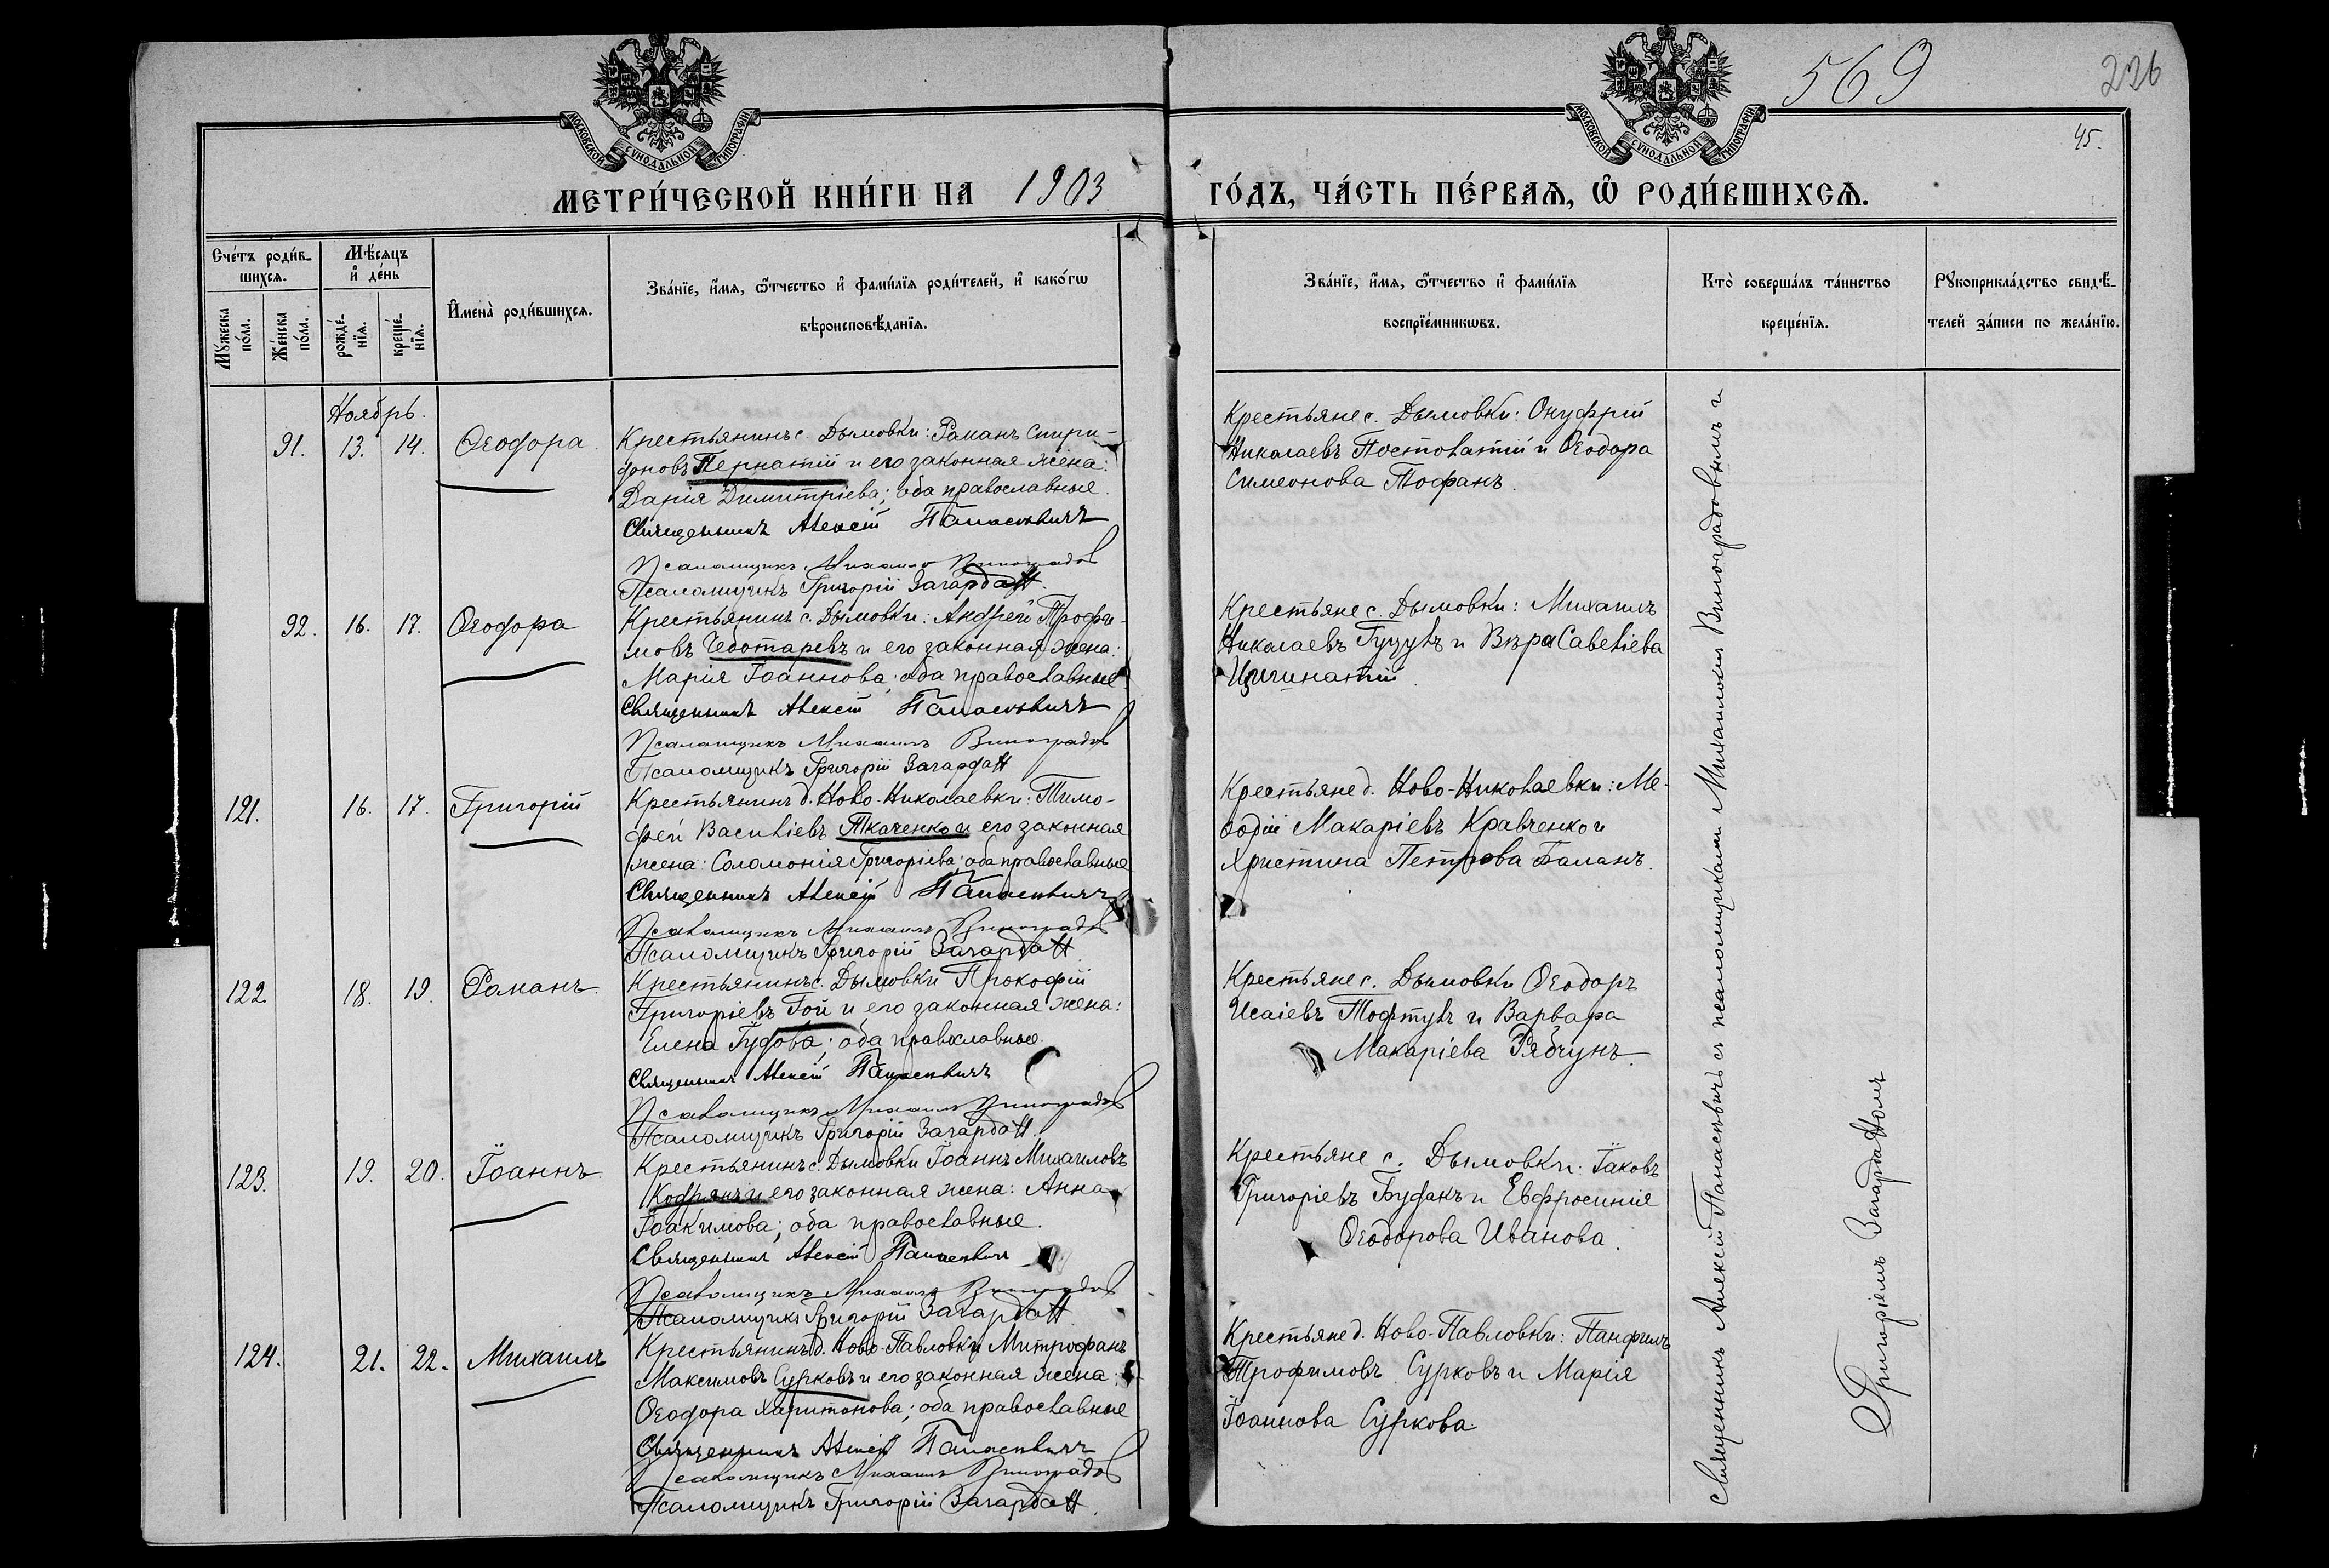 МОСКОВСКОЙ СУНОДАЛЬНОЙ ТИПОГРАФІИ
МОСКОВСКОЙ СУНОДАЛЬНОЙ ТИПОГРАФІИ
569
226
45.
МЕТРИ́ЧЕСКОЙ КНИ́ГИ НА 1903 ГО́ДЪ, ЧА́СТЬ ПЕ́РВАѦ, Ѡ҆ РОДИ́ВШИХСѦ.
Сче́тъ роди́в-
шихсѧ.
Мꙋ́жеска по́ла.
Же́нска по́ла.
Мѣ́сяцъ
и҆ де́нь
рожде́-
нїѧ.
креще́-
нїѧ.
И҆мена̀ роди́вшихсѧ.
Зва́нїе, и҆́мѧ, ѻ҆́тчество и҆ фами́лїѧ роди́телей, и҆ како́гѡ
вѣроисповѣ́данїѧ.
Зва́нїе, и҆́мѧ, ѻ҆́тчество и҆ фами́лїѧ
воспрїе́мникѡвъ.
Кто̀ соверша́лъ та́инство
креще́нїѧ.
Рꙋкоприкла́дство свидѣ́-
телей за́писи по жела́нїю.
Ноябрь.
91. 13. 14. Ѳеодора
Крестьянинъ с. Дымовки: Романъ Спири-
доновъ Пернатій и его законная жена:
Дарія Димитріева; оба православные.
Священникъ Алексій Панасевичъ
Псаломщикъ Михаилъ Виноградов
Псаломщикъ Григорій Загарданъ
Крестьяне с. Дымовки: Онуфрій
Николаевъ Постоватій и Ѳеодора
Симеонова Тофанъ.
92. 16. 17. Ѳеодора
Крестьянинъ с. Дымовки: Андрей Трофи-
мовъ Чеботаревъ и его законная жена:
Марія Іоаннова; оба православные
Священникъ Алексій Панасевичъ
Псаломщикъ Михаилъ Виноградов
Псаломщикъ Григорій Загарданъ
Крестьяне с. Дымовки: Михаилъ
Николаевъ Гуцулъ и Вѣра Савеліева
121. 16. 17. Григорій
Крестьянинъ д. Ново-Николаевки: Тимо-
фей Василіевъ Ткаченко и его законная
жена: Соломонія Григоріева; оба православные
Священникъ Алексій Панасевичъ
Псаломщикъ Михаилъ Виноградов
Псаломщикъ Григорій Загарданъ
Крестьяне д. Ново-Николаевки: Ме-
ѳодій Макаріевъ Кравченко и
Христина Петрова Баланъ.
122. 18. 19. Романъ
Крестьянинъ с. Дымовки Прокофій
Григоріевъ Гой и его законная жена:
Елена; оба православные.
Священникъ Алексій Панасевичъ
Псаломщикъ Михаилъ Виноградов
Псаломщикъ Григорій Загарданъ
Крестьяне с. Дымовки Ѳеодоръ
Исаіевъ и Варвара
Макаріева Рябчунъ.
123. 19. 20. Іоаннъ
Крестьянинъ с. Дымовки Іоаннъ Михаиловъ
Кофрянъ и его законная жена: Анна
Іоакимова; оба православные.
Священникъ Алексій Панасевичъ
Псаломщикъ Михаилъ Виноградов
Псаломщикъ Григорій Загарданъ
Крестьяне с. Дымовки: Іаковъ
Григоріевъ Будакъ и Евфросинія
Ѳеодорова Иванова.
124. 21. 22. Михаилъ
Крестьянинъ д. Ново-Павловки Митрофанъ
Максимовъ Сурковъ и его законная жена:
Ѳеодора Харитонова; оба православные
Священникъ Алексій Панасевичъ
Псаломщикъ Михаилъ Виноградов
Псаломщикъ Григорій Загарданъ.
Крестьяне д. Ново-Павловки: Панфилъ
Трофимовъ Сурковъ и Марія
Іоаннова Суркова.
Священникъ Алексій Панасевичъ съ псаломщиками Михаиломъ Виноградовымъ и
Григоріемъ Загарданомъ